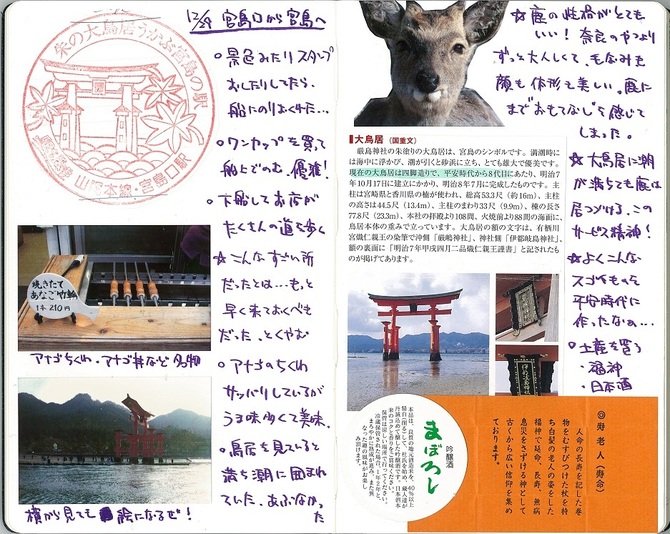 12/29 宮島口から宮島へ
朱の大鳥居うかぶ宮島の駅
山陽本線・宮島口駅
○景色みたりスタンプ
おしたりしてたら、
船にのりおくれた…
○ワンカップを買って
船上でのむ。優雅!
○下船してお店が
たくさんの道を歩く
☆こんなすごい所
だったとは…もっと
早く来ておくべき
だった、とくやむ
○アナゴのちくわ
サッパリしているが
うま味多くて美味。
○鳥居を見ていると
満ち潮に囲まれ
ていた。あぶなかった
焼きたて
あなご竹輪
1本 210円
アナゴちくわ・アナゴ丼など名物
横から見ても絵になるぜ!
☆鹿の性格がとても
いい!奈良のやつより
ずっと大人しく、もなみも
顔も体形も美しい。鹿に
まで"おもてなし"を感じて
しまった。
■大鳥居(国重文)
厳島神社の朱塗りの大鳥居は、宮島のシンボルです。満潮時に
は海中に浮かび、潮が引くと砂浜に立ち、とても雄大で優美です。
現在の大鳥居は四脚造りで、平安時代から8代目にあたり、明治7
年10月17日に建立にかかり、明治8年7月に完成したものです。主
柱は宮崎県と香川県の楠が使われ、総高53.3尺(約16m)、主柱
の高さは44.5尺(13.4m)、主柱のまわり33尺(9.9m)、棟の長さ
77.8尺(23.3m)、本社の拝殿より108間、火焼前より88間の海面に、
鳥居本体の重みで立っています。大鳥居の額の文字は、有栖川
宮熾仁親王の染筆で沖側「厳嶋神社」、神社側「伊都岐島神社」、
額の裏面に「明治7年甲戌四月二品熾仁親王謹書」と記されたも
のが掲げてあります。
☆大鳥居に潮
が満ちても鹿は
居つづける。この
サービス精神!
☆よくこんな
スゴイものを
平安時代に
作ったなぁ…
○土産を買う
・福神
・日本酒
吟醸酒
まぼろし
◎寿老人(寿命)
人命の長寿を記した巻
物をむすびつけた杖を持
ち白髪の老人の姿をした
福神で延命、長寿、無病
息災をさずける神として
古くから広い信仰を集め
ております。